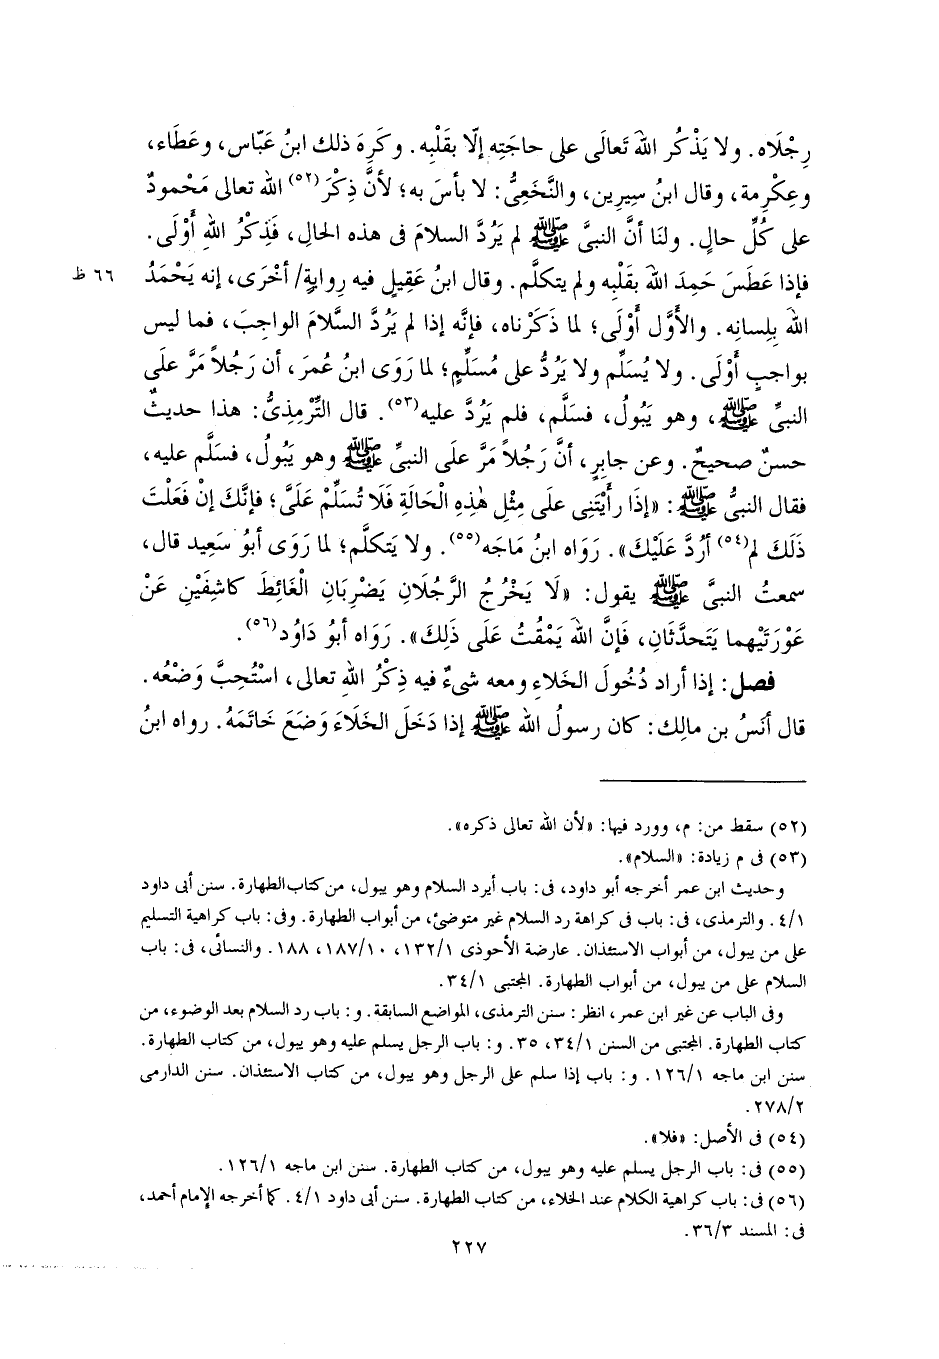 رِجْلَاه. ولا يَذْكُر اللهَ تَعالَى على حاجَتِه إلّا بقَلْبِه. وكَرِهَ ذلك ابنُ عَبّاس، وعَطَاء،
وعِكْرِمة، وقال ابنُ سِيرِين، والنَّخَعِىُّ: لا بأسَ به؛ لأنَّ ذِكْرَ (٥٢) الله تعالى مَحْمودٌ
على كُلِّ حالٍ. ولنَا أنَّ النبىَّ ﷺ لم يَرُدَّ السلامَ فى هذه الحالِ، فَذِكْرُ اللهِ أَوْلَى.
فإذا عَطَسَ حَمِدَ اللهَ بقَلْبِه ولم يتكلَّم. وقال ابنُ عَقِيلٍ فيه رِوايةٍ/ أُخْرَى، إنه يَحْمَدُ
٦٦ ظ
اللهَ بِلِسانِه. والأوَّل أَوْلَى؛ لما ذَكَرْناه، فإنَّه إذا لم يَرُدَّ السَّلامَ الواجِبَ، فما ليس
بواجبٍ أَوْلَى. ولا يُسَلِّم ولا يَرُدُّ على مُسَلِّمٍ؛ لما رَوَى ابنُ عُمرَ، أن رَجُلاً مَرَّ علَى
النبىِّ ﷺ، وهو يَبُولُ، فسَلَّم، فلم يَرُدَّ عليه(٥٣). قال التِّرْمِذِىُّ: هذا حديثٌ
حسنٌ صحيحٌ. وعن جابِرٍ، أنَّ رَجُلاً مَرَّ علَى النبىِّ ﷺ وهو يَبُولُ، فسَلَّم عليه،
فقال النبىُّ ﷺ: «إذَا رأيْتَنِى علَى مِثْلِ هٰذِهِ الْحَالَةِ فَلَا تُسَلِّمْ عَلَىَّ؛ فإنَّكَ إنْ فَعَلْتَ
ذَلَكَ لم(٥٤) أرُدَّ عَلَيْكَ». رَوَاه ابنُ مَاجَه(٥٥). ولا يَتكلَّم؛ لما رَوَى أبو سَعِيد قال،
سمعتُ النبىَّ ﷺ يقول: «لَا يَخْرُجُ الرَّجُلَانِ يَضْرِبَانِ الْغَائِطَ كاشِفَيْنِ عَنْ
عَوْرَتَيْهِما يَتَحدَّثَانِ، فَإنَّ اللهَ يَمْقُتُ عَلَى ذَلِكَ». رَوَاه أبو دَاوُد(٥٦).
فصل: إذا أراد دُخُولَ الخَلاءِ ومعه شىءٌ فيه ذِكْرُ اللهِ تعالى، اسْتُحِبَّ وَضْعُه.
قال أنَسُ بن مالِك: كان رسولُ الله ﷺ إذا دَخَلَ الخَلَاءَ وَضَعَ خَاتَمَهُ. رواه ابنُ
(٥٢) سقط من: م، وورد فيها: «لأن الله تعالى ذكره».
(٥٣) فى م زيادة: «السلام».
وحديث ابن عمر أخرجه أبو داود، فى: باب أيرد السلام وهو يبول، من كتاب الطهارة. سنن أبى داود
٤/١. والترمذى، فى: باب فى كراهة رد السلام غير متوضئ، من أبواب الطهارة. وفى: باب كراهية التسليم
على من يبول، من أبواب الاستئذان. عارضة الأحوذى ١٣٢/١، ١٨٧/١٠، ١٨٨. والنسائى، فى: باب
السلام على من يبول، من أبواب الطهارة. المجتبى ٣٤/١.
وفى الباب عن غير ابن عمر، انظر: سنن الترمذى، المواضع السابقة. و: باب رد السلام بعد الوضوء، من
كتاب الطهارة. المجتبى من السنن ٣٤/١، ٣٥. و: باب الرجل يسلم عليه وهو يبول، من كتاب الطهارة.
سنن ابن ماجه ١٢٦/١. و: باب إذا سلم على الرجل وهو يبول، من كتاب الاستئذان. سنن الدارمى
٢٧٨/٢.
(٥٤) فى الأصل: «فلا».
(٥٥) فى: باب الرجل يسلم عليه وهو يبول، من كتاب الطهارة. سنن ابن ماجه ١٢٦/١.
(٥٦) فى: باب كراهية الكلام عند الخلاء، من كتاب الطهارة. سنن أبى داود ٤/١. كما أخرجه الإمام أحمد،
فى: المسند ٣٦/٣.
٢٢٧